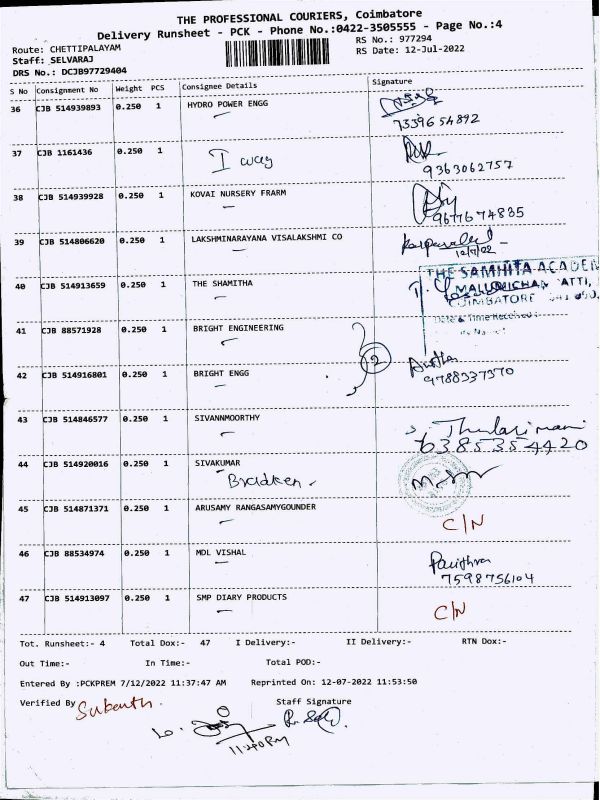 THE PROFESSIONAL COURIERS, Coimbatore
Delivery Runsheet - PCK - Phone No.:0422-3505555 - Page No.:4
Route: CHETTIPALAYAM
RS No.: 977294
Staff: SELVARAJ
RS Date: 12-Jul-2022
DRS No.: DCJB97729404
S No Consignment No Weight PCS Consignee Details Signature
36 CJB 514939893 0.250 1 HYDRO POWER ENGG
7339654892
37 CJB 1161436 0.250 1 I way
9363062757
38 CJB 514939928 0.250 1 KOVAI NURSERY FRARM
9677674835
39 CJB 514806620 0.250 1 LAKSHMINARAYANA VISALAKSHMI CO
40 CJB 514913659 0.250 1 THE SHAMITHA
THE SAMHITA ACADEM
MALUMICHAMPATTI,
COIMBATORE
Date & Time Received:
41 CJB 88571928 0.250 1 BRIGHT ENGINEERING
2
42 CJB 514916801 0.250 1 BRIGHT ENGG
9788337370
43 CJB 514846577 0.250 1 SIVANNMOORTHY
S. Thulasimani
6385354420
44 CJB 514920016 0.250 1 SIVAKUMAR
45 CJB 514871371 0.250 1 ARUSAMY RANGASAMYGOUNDER
C/N
46 CJB 88534974 0.250 1 MDL VISHAL
Pavithra
7598756104
47 CJB 514913097 0.250 1 SMP DIARY PRODUCTS
C/N
Tot. Runsheet:- 4 Total Dox:- 47 I Delivery:- II Delivery:- RTN Dox:-
Out Time:- In Time:- Total POD:-
Entered By :PCKPREM 7/12/2022 11:37:47 AM Reprinted On: 12-07-2022 11:53:50
Verified By Staff Signature